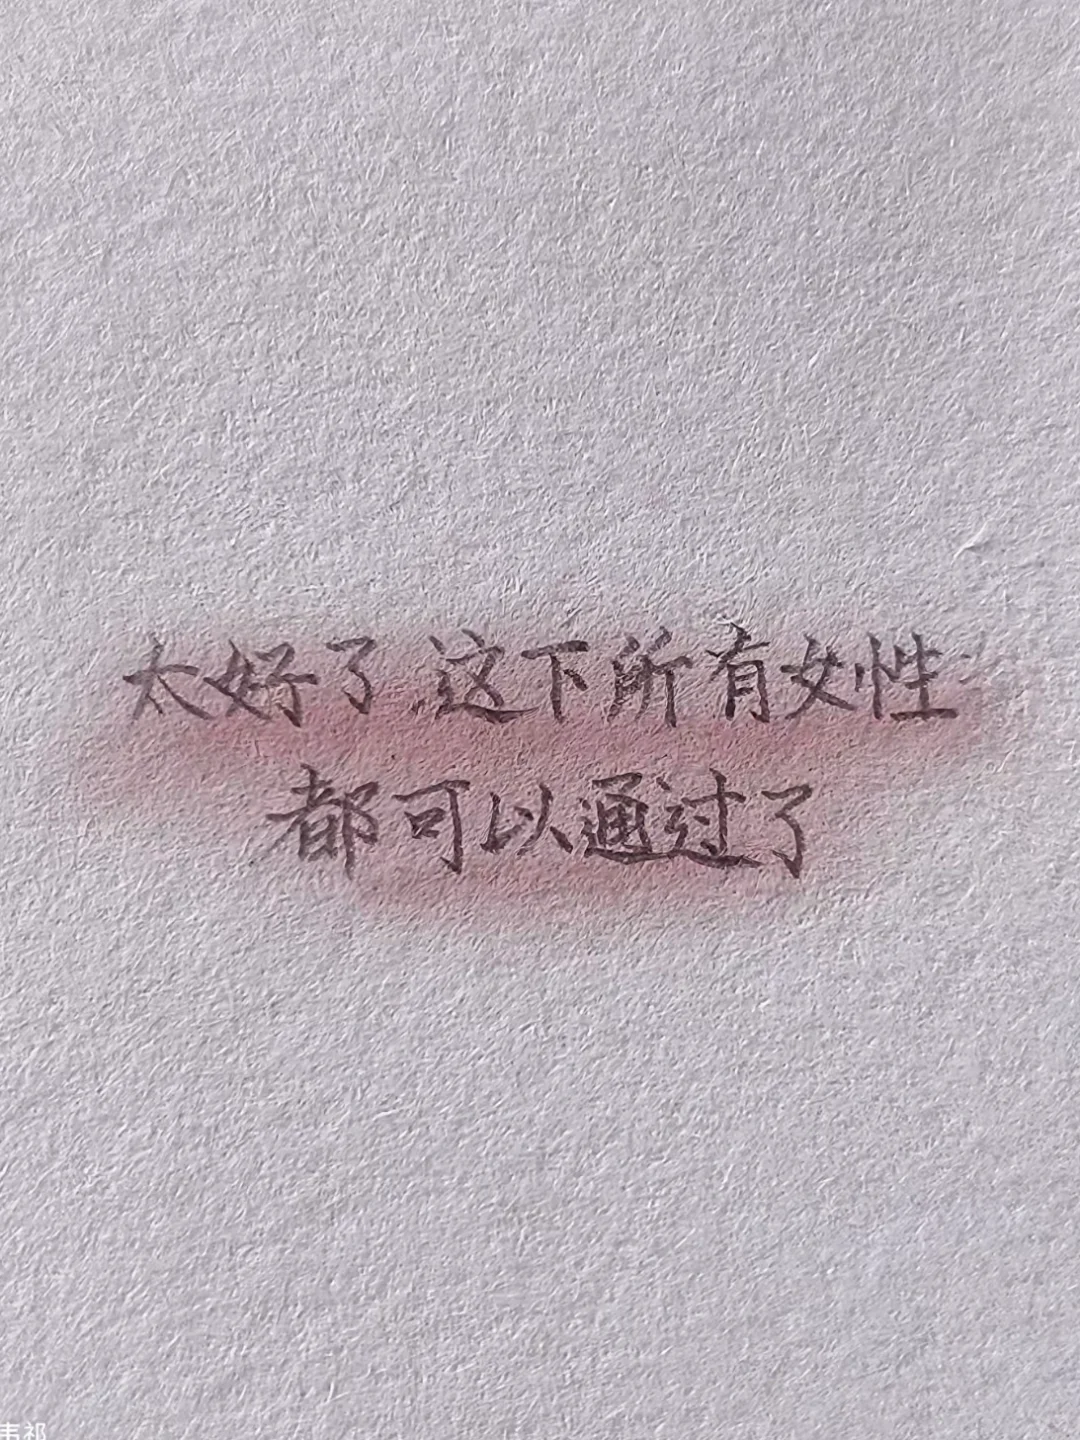 太好了.这下所有女性
都可以通过了
韦祁